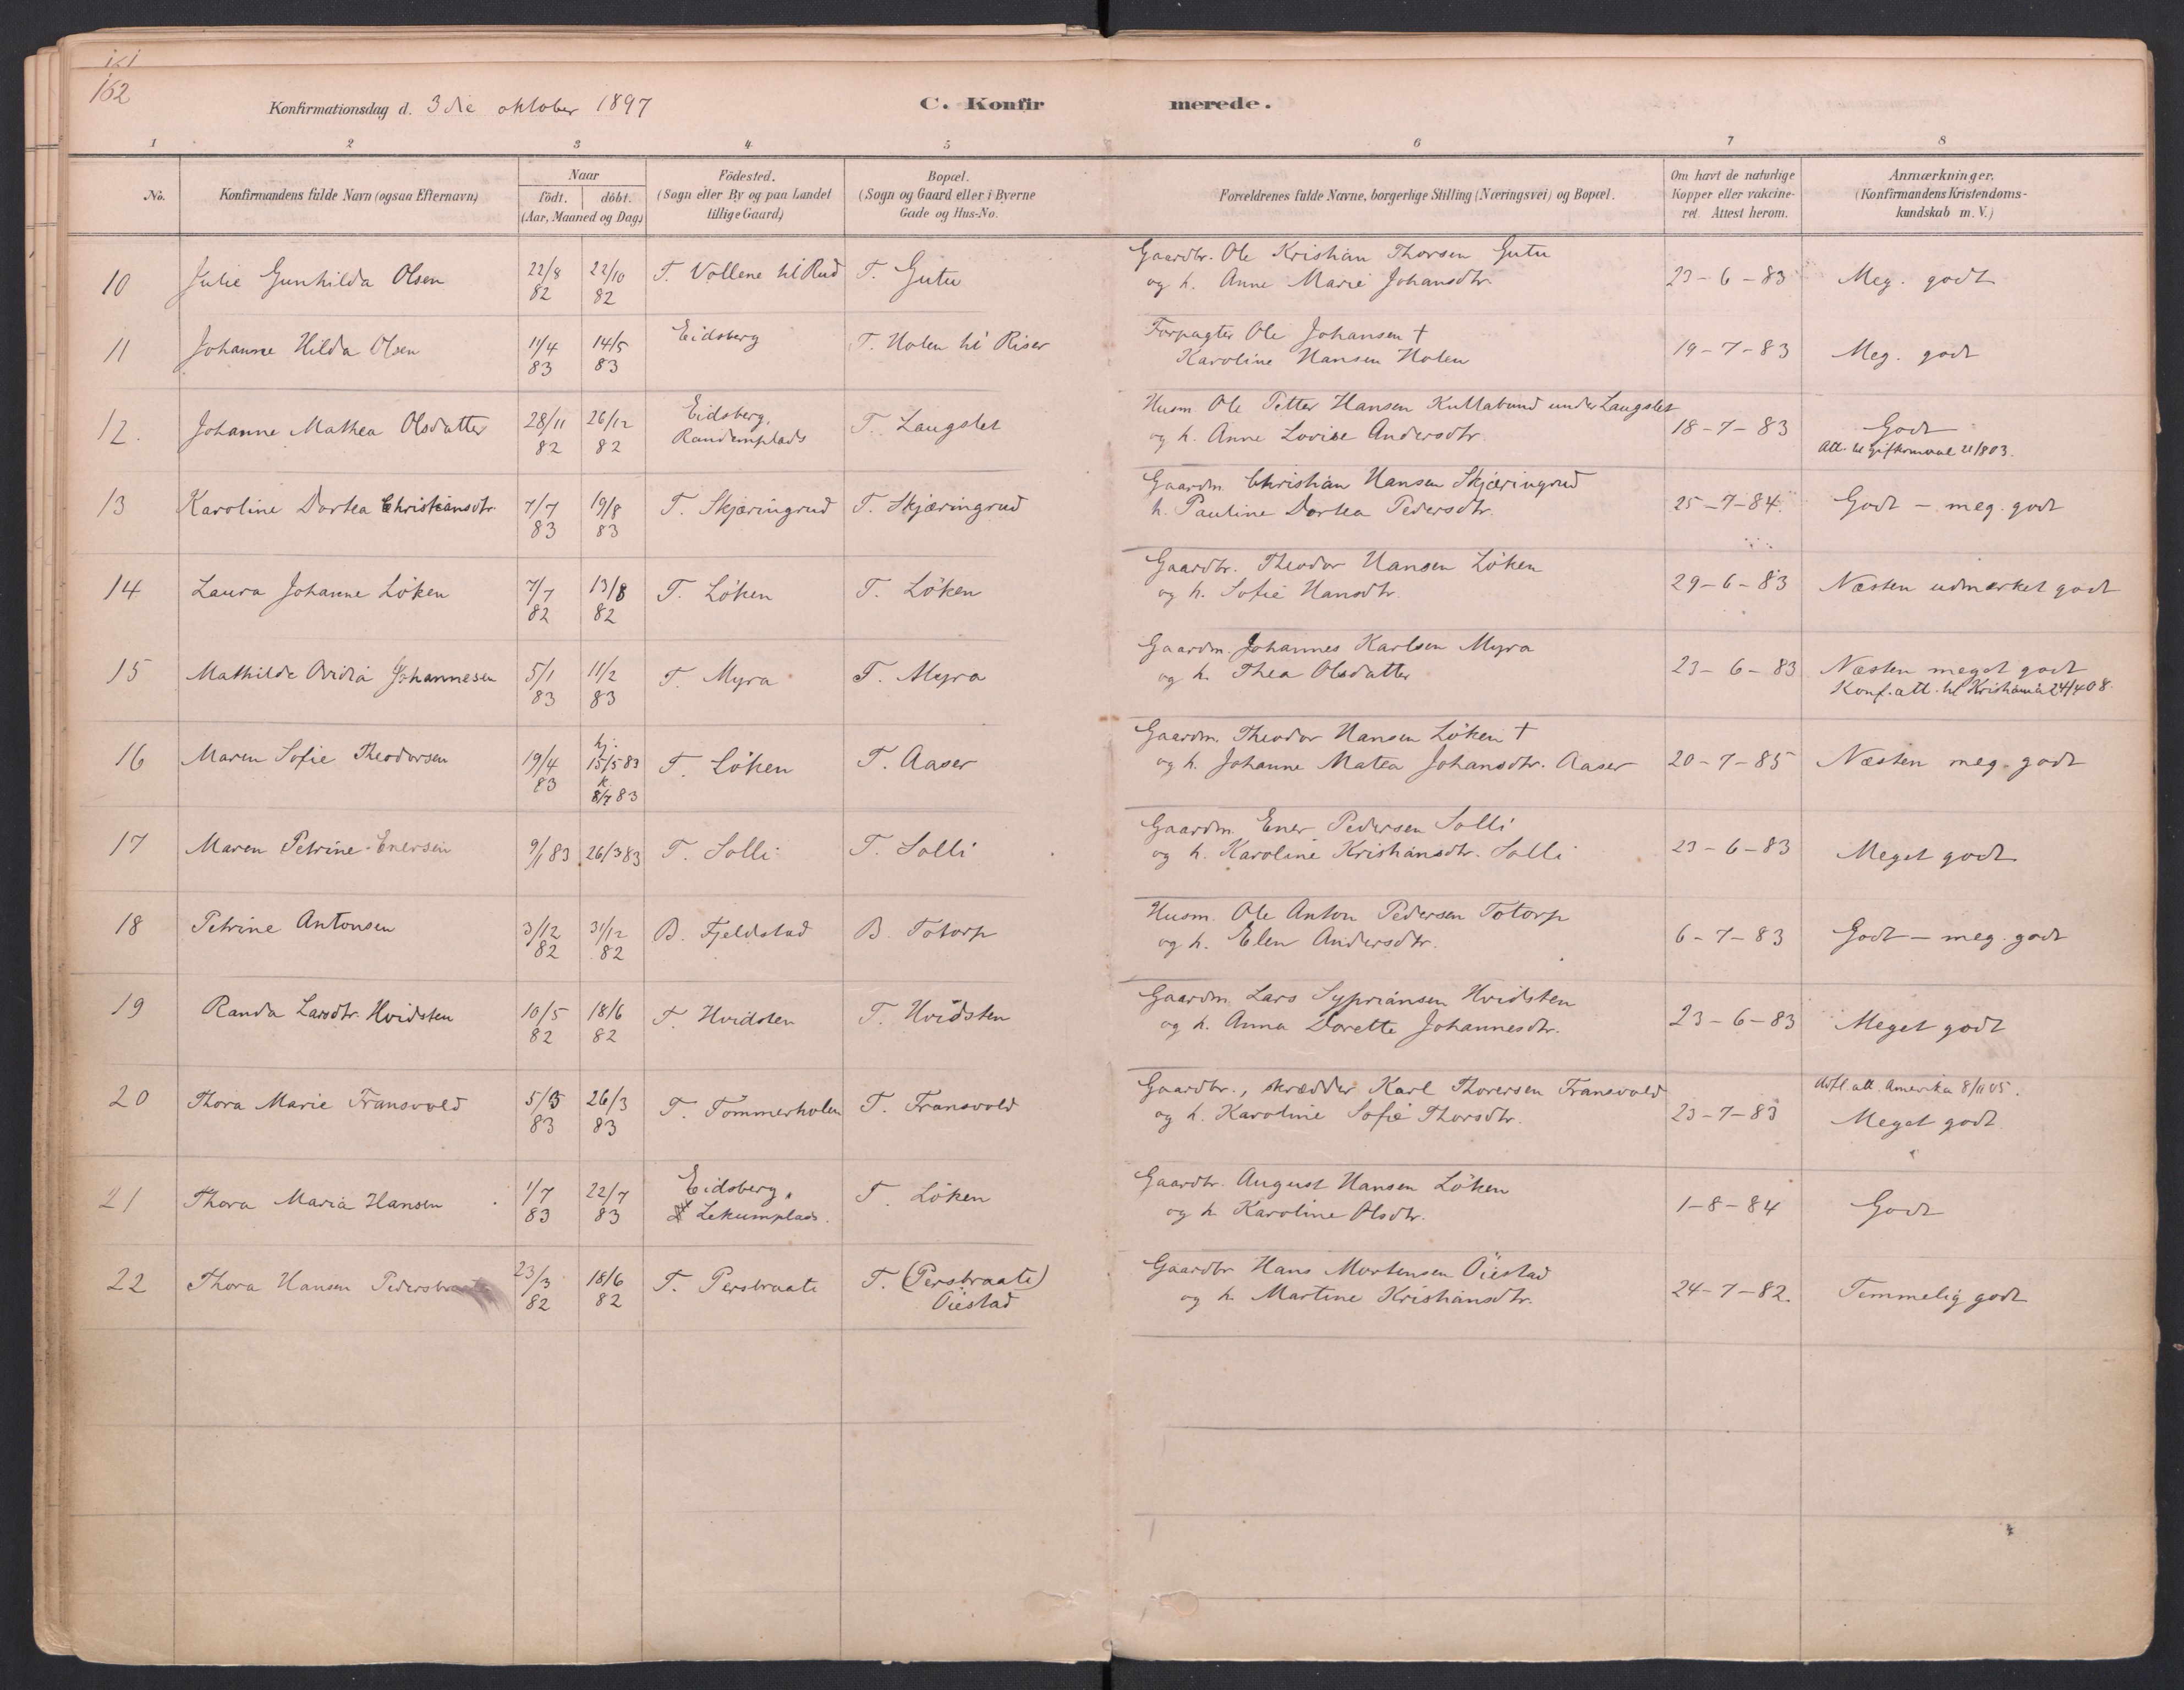 162
Konfirmationsdag d. 3die oktober 1897
C. Konfirmerede.
1 2 3 4 5 6 7 8
No. Konfirmandens fulde Navn (ogsaa Efternavn) Naar födt. döbt. (Aar, Maaned og Dag) Födested. (Sogn eller By og paa Landet tillige Gaard) Bopæl. (Sogn og Gaard eller i Byerne Gade og Hus-No. Forældrenes fulde Navne, borgerlige Stilling (Næringsvei) og Bopæl. Om havt de naturlige Kopper eller vakcineret. Attest herom. Anmærkninger. (Konfirmandens Kristendomskundskab m. V.)
10 Julie Gunhilda Olsen 22/8 82 22/10 82 T. Vollene til Rud T. Gutu Gaardbr. Ole Kristian Thorsen Gutu
og h. Anne Marie Johansdtr. 23-6-83 Meg. godt
11 Johanne Hilda Olsen 11/4 83 14/5 83 Eidsberg T. Holen til Riser Forpagter Ole Johansen †
Karoline Hansen Holen 19-7-83 Meg. godt
12. Johanne Mathea Olsdatter 28/11 82 26/12 82 Eidsberg, Randemplads T. Laugslet Husm. Ole Petter Hansen Kullabund under Laugslet
og h. Anne Lovise Andersdtr. 18-7-83 Godt
Att. til giftermaal 21/8 03.
13 Karoline Dortea Christiansdtr. 7/7 83 19/8 83 T. Skjæringrud T. Skjæringrud Gaardm. Christian Hansen Skjæringrud
h. Pauline Dortea Pedersdtr. 25-7-84. Godt - meg. godt
14 Laura Johanne Löken 7/7 82 13/8 82 T. Löken T. Löken Gaardbr. Theodor Hansen Löken
og h. Sofie Hansdtr. 29-6-83 Næsten udmærket godt
15 Mathilde Ovidia Johannesen 5/1 83 11/2 83 T. Myra T. Myra Gaardm. Johannes Karlsen Myra
og h. Thea Olsdatter 23-6-83 Næsten meget godt
Konf. att. til Kristiania 24/4 08.
16 Maren Sofie Theodorsen 19/4 83 hj. 15/5 83 k. 8/7 83 T. Löken T. Aaser Gaardm. Theodor Hansen Löken †
og h. Johanne Matea Johansdtr. Aaser 20-7-85 Næsten meg. godt
17 Maren Petrine Enersen 9/1 83 26/3 83 T. Solli T. Solli Gaardm. Ener Pedersen Solli
og h. Karoline Kristiansdtr. Solli 23-6-83 Meget godt
18 Petrine Antonsen 3/12 82 31/12 82 B. Fjeldstad B. Totorp Husm. Ole Anton Pedersen Totorp
og h. Elen Andersdtr. 6-7-83 Godt - meg. godt
19 Randa Larsdtr. Hvidsten 10/5 82 18/6 82 T. Hvidsten T. Hvidsten Gaardm. Lars Sypriansen Hvidsten
og h. Anna Dorette Johannesdtr. 23-6-83 Meget godt
20 Thora Marie Fransvold 5/3 83 26/3 83 T. Tommerholen T. Fransvold Gaardbr., skrædder Karl Thoresen Fransvold
og h. Karoline Sofie Thorsdtr. 23-7-83 Utfl. att. Amerika 8/11 05.
Meget godt
21 Thora Maria Hansen 1/7 83 22/7 83 Eidsberg, Lekumplads. T. Löken Gaardbr. August Hansen Löken
og h. Karoline Olsdtr. 1-8-84 Godt
22 Thora Hansen Pedersbraate 23/3 82 18/6 82 T. Persbraate T. (Persbraate) Öiestad Gaardbr Hans Mortensen Öiestad
og h. Martine Kristiansdtr. 24-7-82. Temmelig godt